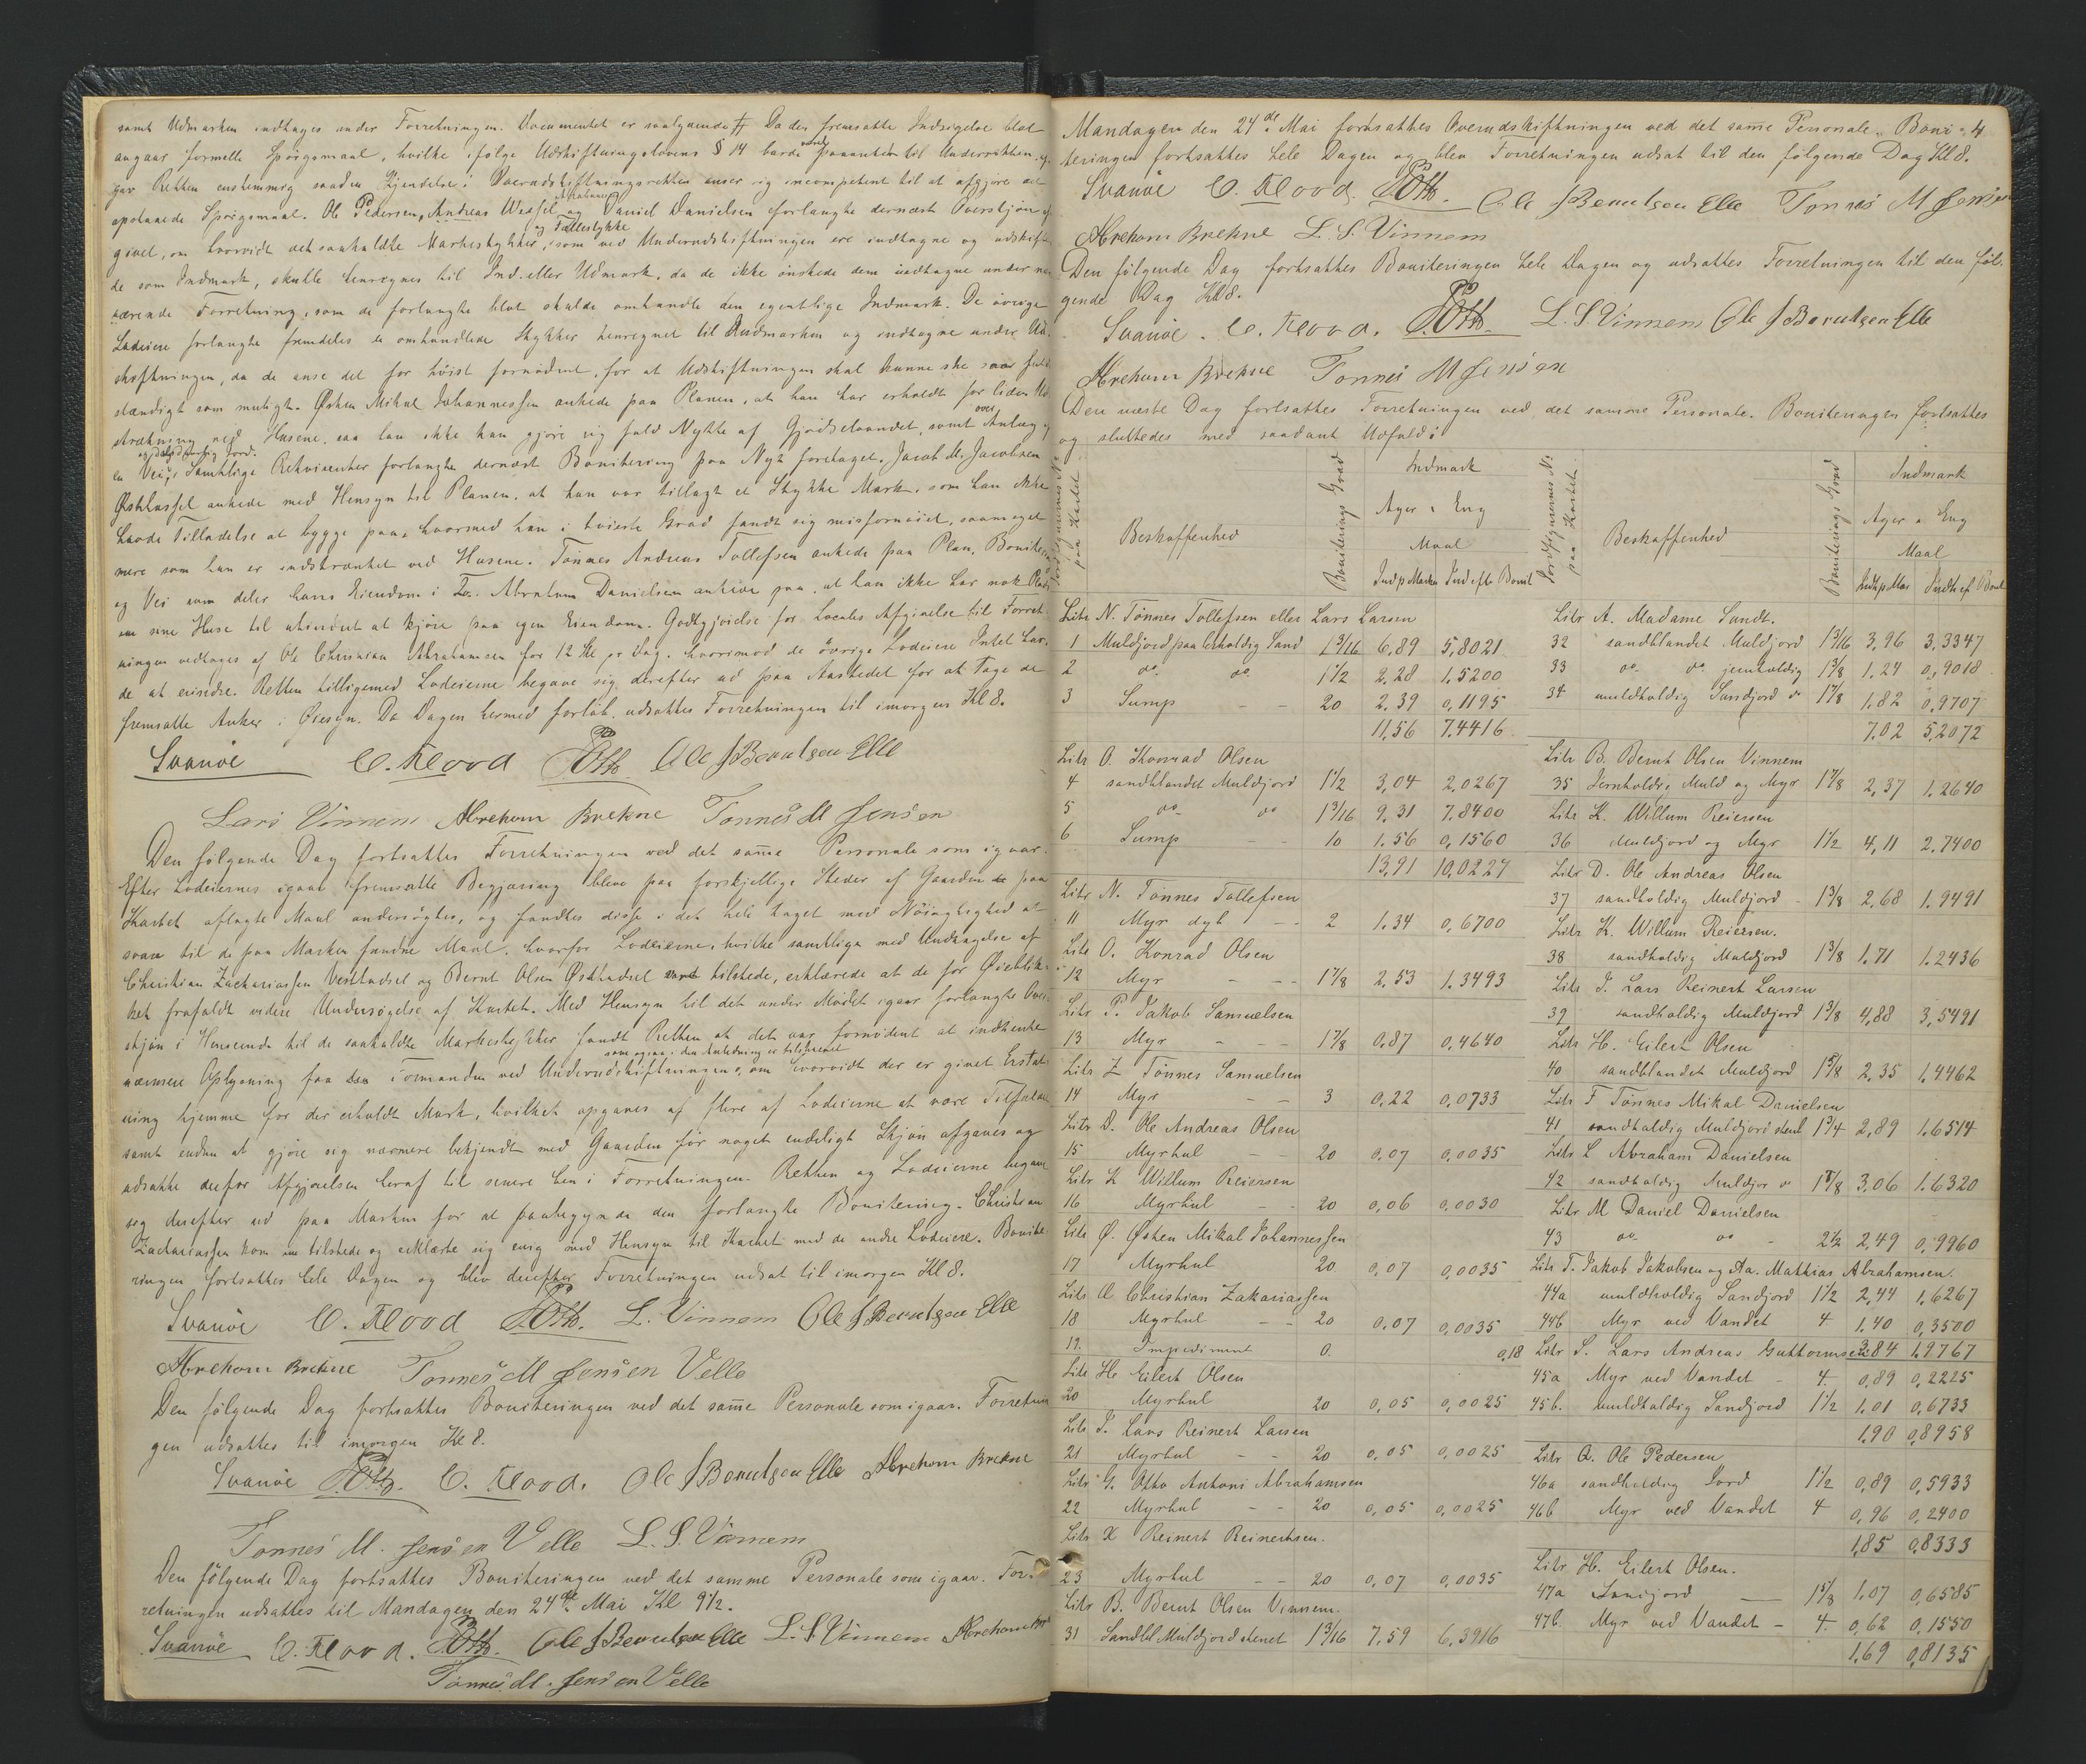 samt Udmarken indtages under Forretningen. Documentet er saalydende # Da den fremsatte Indsigelse blot
angaar formelle Spörgsmaal, hvilke ifølge Udskiftningslovens § 14 burde være paaanket til Underretten
gav Retten eenstemmig saadan Kjendelse: Overudskiftningsretten anser sig incompetent til at afgjöre det
opstaaede Spörgsmaal. Ole Pedersen, Andreas Wessel og Daniel Danielsen forlangte dernæst Overskjön af
givet, om hvorvidt de saakaldte Markestykker, og Fællestykke som ved Underudskiftningen ere indtagne og udskift
de som Indmark, skulle henregnes til Ind- eller Udmark, da de ikke önskede dem indtagne under nær
værende Forretning, som de forlangte blot skulde omhandle den egentlige Indmark. De övrige
Lodeiere forlangte fremdeles de omhandlede Stykker henregnet til Indmarken og indtagne under Ud
skiftningen, da de anse det for höist fornödent, for at Udskiftningen skal kunne ske saa fuld
stændigt som muligt. Østen Mikal Johannessen ankede paa Planen, at han har erholdt for liden Ud
strækning ved Husene, saa han ikke kan gjöre sig fuld Nytte af Gjödselvandet, samt over Anlæg af
en Vei. Samtlige Rekvirenter forlangte dernæst Bonitering paa Nyt foretaget. Jacob M. Jacobsen
Östhassel ankede med Hensyn til Planen, at han var tillagt et Stykke Mark, som han ikke
havde Tilladelse at bygge paa, hvormed han i höieste Grad fandt sig misfornöiet, saameget
mere som han er indskrænket ved Husene. Tönnes Andreas Tollefsen ankede paa Plan, Bonitering
og Vei som deler hans Eiendom i To. Abraham Danielsen ankede paa, at han ikke har nok Plads
om sine Huse til uhindret at kjöre paa egen Eiendom. Godtgjörelse for Locales Afgivelse til Forret-
ningen vedtages af Ole Christian Abrahamsen for 12 Sk pr Dag, hvorimod de övrige Lodeiere Intet hav-
de at erindre. Retten tilligemed Lodeierne begave sig derefter ud paa Aastedet for at tage de
fremsatte Anker i Øiesyn. Da Dagen hermed forløb, udsattes Forretningen til imorgen Kl 8.
Svanöe C. Flood. POtt. Ole J Berntsen Elle
Lars Vinnem Abreham Brekne Tonnes M Jensen
Den følgende Dag fortsattes Forretningen ved det samme Personale som igaar.
Efter Lodeiernes igaar fremsatte Begjæring bleve paa forskjellige Steder af Gaarden de paa
Kartet aflagte Maal undersögte, og fandtes disse i det hele taget med Nöiagtighed at
svare til de paa Marken fundne Maal, hvorfor Lodeierne, hvilke samtlige med Undtagelse af
Christian Zachariassen Vesthassel og Bernt Olsen Østhassel vare tilstede, erklærede at de for Øieblik-
ket frafaldt videre Undersögelse af Kartet. Med Hensyn til det under Mödet igaar forlangte Over
skjön i Henseende til de saakaldte Markestykker fandt Retten at det var fornödent at indhente
nærmere Oplysning fra Formanden ved Underudskiftningen, som ogsaa i den Anledning er tilskrevet om hvorvidt der er givet Erstat
ning hjemme for der erholdt Mark, hvilket opgaves af flere af Lodeierne at være Tilfældet
samt endnu at gjöre sig nærmere bekjendt med Gaarden för noget endeligt Skjön afgaves og
udsatte derfor Afgjörelsen heraf til senere hen i Forretningen. Retten og Lodeierne begave
sig derefter ud paa Marken for at paabegynde den forlangte Bonitering. Christian
Zachariassen kom nu tilstede og erklærte sig enig med Hensyn til Kartet med de andre Lodeiere. Bonite
ringen fortsattes hele Dagen og blev derefter Forretningen udsat til imorgen Kl 8.
Svanöe C. Flood POtt. L. Vinnem Ole J Berntsen Elle
Abreham Brekne Tonnes M Jensen Velle
Den følgende Dag fortsattes Boniteringen ved det samme Personale som igaar. Forretnin
gen udsattes til imorgen Kl 8.
Svanöe POtt. C. Flood. Ole J Berntsen Elle Abreham Brekne
Tonnes M. Jensen Velle L. S. Vinnem
Den følgende Dag fortsattes Boniteringen ved det samme Personale som igaar. For-
retningen udsattes til Mandagen den 24de Mai Kl 9½.
Svanöe C. Flood. POtt. Ole J Berntsen Elle L. S. Vinnem Abreham
Tonnes. M. Jensen Velle
Mandagen den 24de Mai fortsattes Overudskiftningen ved det samme Personale. Boni- 4
teringen fortsattes hele Dagen og blev Forretningen udsat til den følgende Dag Kl 8.
Svanöe C. Flood. POtt. Ole J Berntsen Elle Tonnes M Jensen
Abreham Brekne L. S. Vinnem
Den følgende Dag fortsattes Boniteringen hele Dagen og udsattes Forretningen til den føl-
gende Dag Kl 8.
Svanöe. C. Flood. POtt. L. S Vinnem Ole J Berntsen Elle
Abreham Brekne Tonnes M Jensen
Den næste Dag fortsattes Forretningen ved det samme Personale. Boniteringen fortsattes
og sluttedes med saadant Udfald:
Jordfigurernes No paa Kartet Beskaffenhed Boniterings Grad Indmark Ager & Eng Maal Indh p Marken Indh efter Bonit
Litr N. Tønnes Tollefsen eller Lars Larsen
1 Muldjord paa lerholdig Sand 1 3/16 6,89 5,8021
2 do do 1½ 2,28 1,5200
3 Sump 20 2,39 0,1195
11,56 7,4416
Litr O. Konrad Olsen
4 sandblandet Muldjord 1½ 3,04 2,0267
5 do do 1 3/16 9,31 7,8400
6 Sump 10 1,56 0,1560
13,91 10,0227
Litr N. Tønnes Tollefsen
11 Myr dyb 2 1,34 0,6700
Litr O. Konrad Olsen
12 Myr 1 7/8 2,53 1,3493
Litr P. Jakob Samuelsen
13 Myr 1 7/8 0,87 0,4640
Litr Z Tønnes Samuelsen
14 Myr 3 0,22 0,0733
Litr D. Ole Andreas Olsen
15 Myrhul 20 0,07 0,0035
Litr K Willum Reiersen
16 Myrhul 20 0,06 0,0030
Litr Ø. Østen Mikal Johannessen
17 Myrhul 20 0,07 0,0035
Litr C Christian Zakariassen
18 Myrhul 20 0,07 0,0035
19. Impediment 0. 0,18
Litr H. Eilert Olsen
20 Myrhul 20 0,05 0,0025
Litr I. Lars Reinert Larsen
21 Myrhul 20 0,05 0,0025
Litr G. Otto Antoni Abrahamsen
22 Myrhul 20 0,05 0,0025
Litr X Reinert Reinertsen.
23 Myrhul 20 0,07 0,0035
Litr B. Bernt Olsen Vinnem.
31 Sandbl Muldjord stenet 1 3/16 7,59 6,3916
Jordfigurernes No paa Kartet Beskaffenhed Boniterings Grad Indmark Ager & Eng Maal Indh p Mar Indh ef Bonit
Litr A. Madame Sundt.
32 sandblandet Muldjord 1 3/16 3,96 3,3347
33 do do jernholdig 1 3/8 1,24 0,9018
34 muldholdig Sandjord do 1 7/8 1,82 0,9707
7,02 5,2072
Litr B. Bernt Olsen Vinnem
35 Jernholdig Muld og Myr 1 7/8 2,37 1,2640
Litr K. Willum Reiersen
36 Muldjord og Myr 1½ 4,11 2,7400
Litr D. Ole Andreas Olsen
37 sandholdig Muldjord 1 3/8 2,68 1,9491
Litr K. Willum Reiersen.
38 sandholdig Muldjord 1 3/8 1,71 1,2436
Litr I. Lars Reinert Larsen
39 sandholdig Muldjord 1 3/8 4,88 3,5491
Litr H. Eilert Olsen
40 sandblandet Muldjord 1 5/8 2,35 1,4462
Litr F Tønnes Mikal Danielsen
41 sandholdig Muldjord stenet 1 3/4 2,89 1,6514
Litr L Abraham Danielsen
42 sandholdig Muldjor do 1 7/8 3,06 1,6320
Litr M Daniel Danielsen
43 do do 2½ 2,49 0,9960
Litr T. Jakob Jakobsen og Aa. Mathias Abrahamsen.
44a muldholdig Sandjord 1½ 2,44 1,6267
44b Myr ved Vandet 4 1,40 0,3500
Litr S. Lars Andreas Guttormsen 3,84 1,9767
45a Myr ved Vandet 4. 0,89 0,2225
45b. muldholdig Sandjord 1½ 1,01 0,6733
1,90 0,8958
Litr Q. Ole Pedersen
46a sandholdig Jord 1½ 0,89 0,5933
46b Myr ved Vandet 4 0,96 0,2400
1,85 0,8333
Litr H. Eilert Olsen.
47a Sandjord 1 5/8 1,07 0,6585
47b. Myr ved Vandet 4. 0,62 0,1550
1,69 0,8135